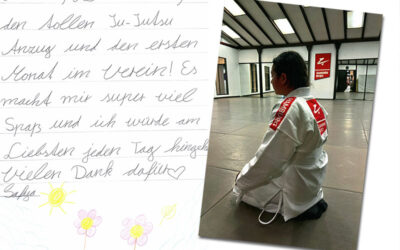 den tollen Ju-Jutsu
Anzug und den ersten
Monat im Verein! Es
macht mir super viel
Spaß und ich würde am
Liebsten jeden Tag hingeh
Vielen Dank dafür♡